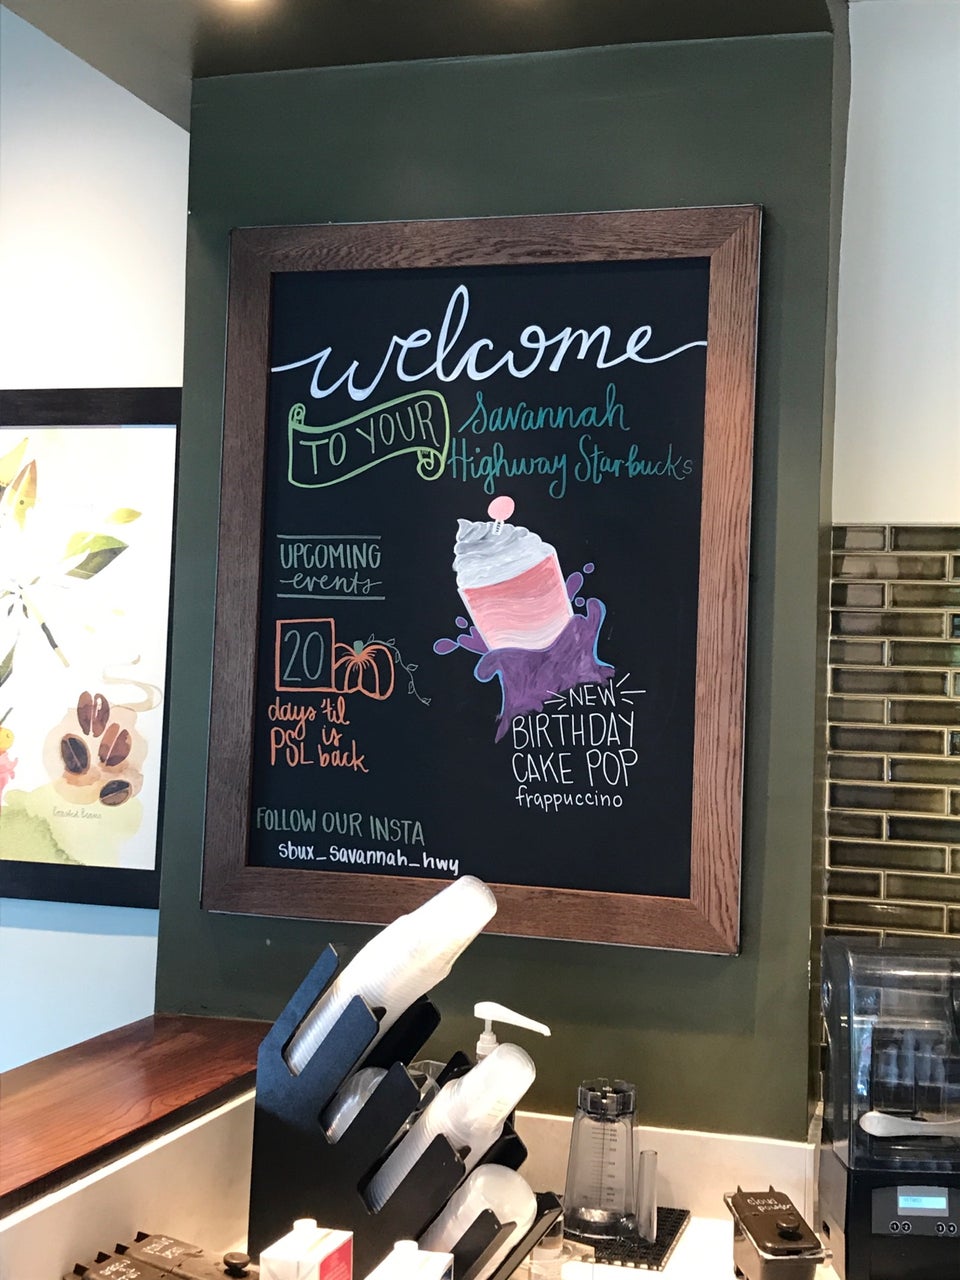 welcome
TO YOUR
Savannah
Highway Starbucks
UPCOMING
events
20
days 'til
PSL is back
NEW
BIRTHDAY
CAKE POP
frappuccino
FOLLOW OUR INSTA
sbux_savannah_hwy
Roasted Beans
cloud
powder